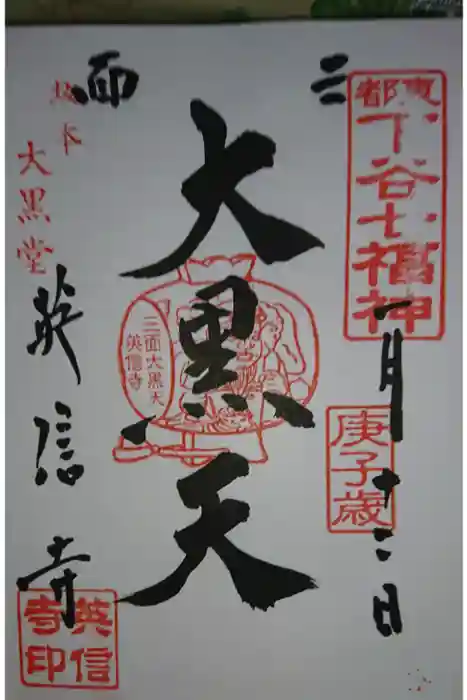 三面
東都下谷七福神
一月十二日
庚子歳
大黒天
三面大黒天
英信寺
坂本
大黒堂
英信寺
英信寺印